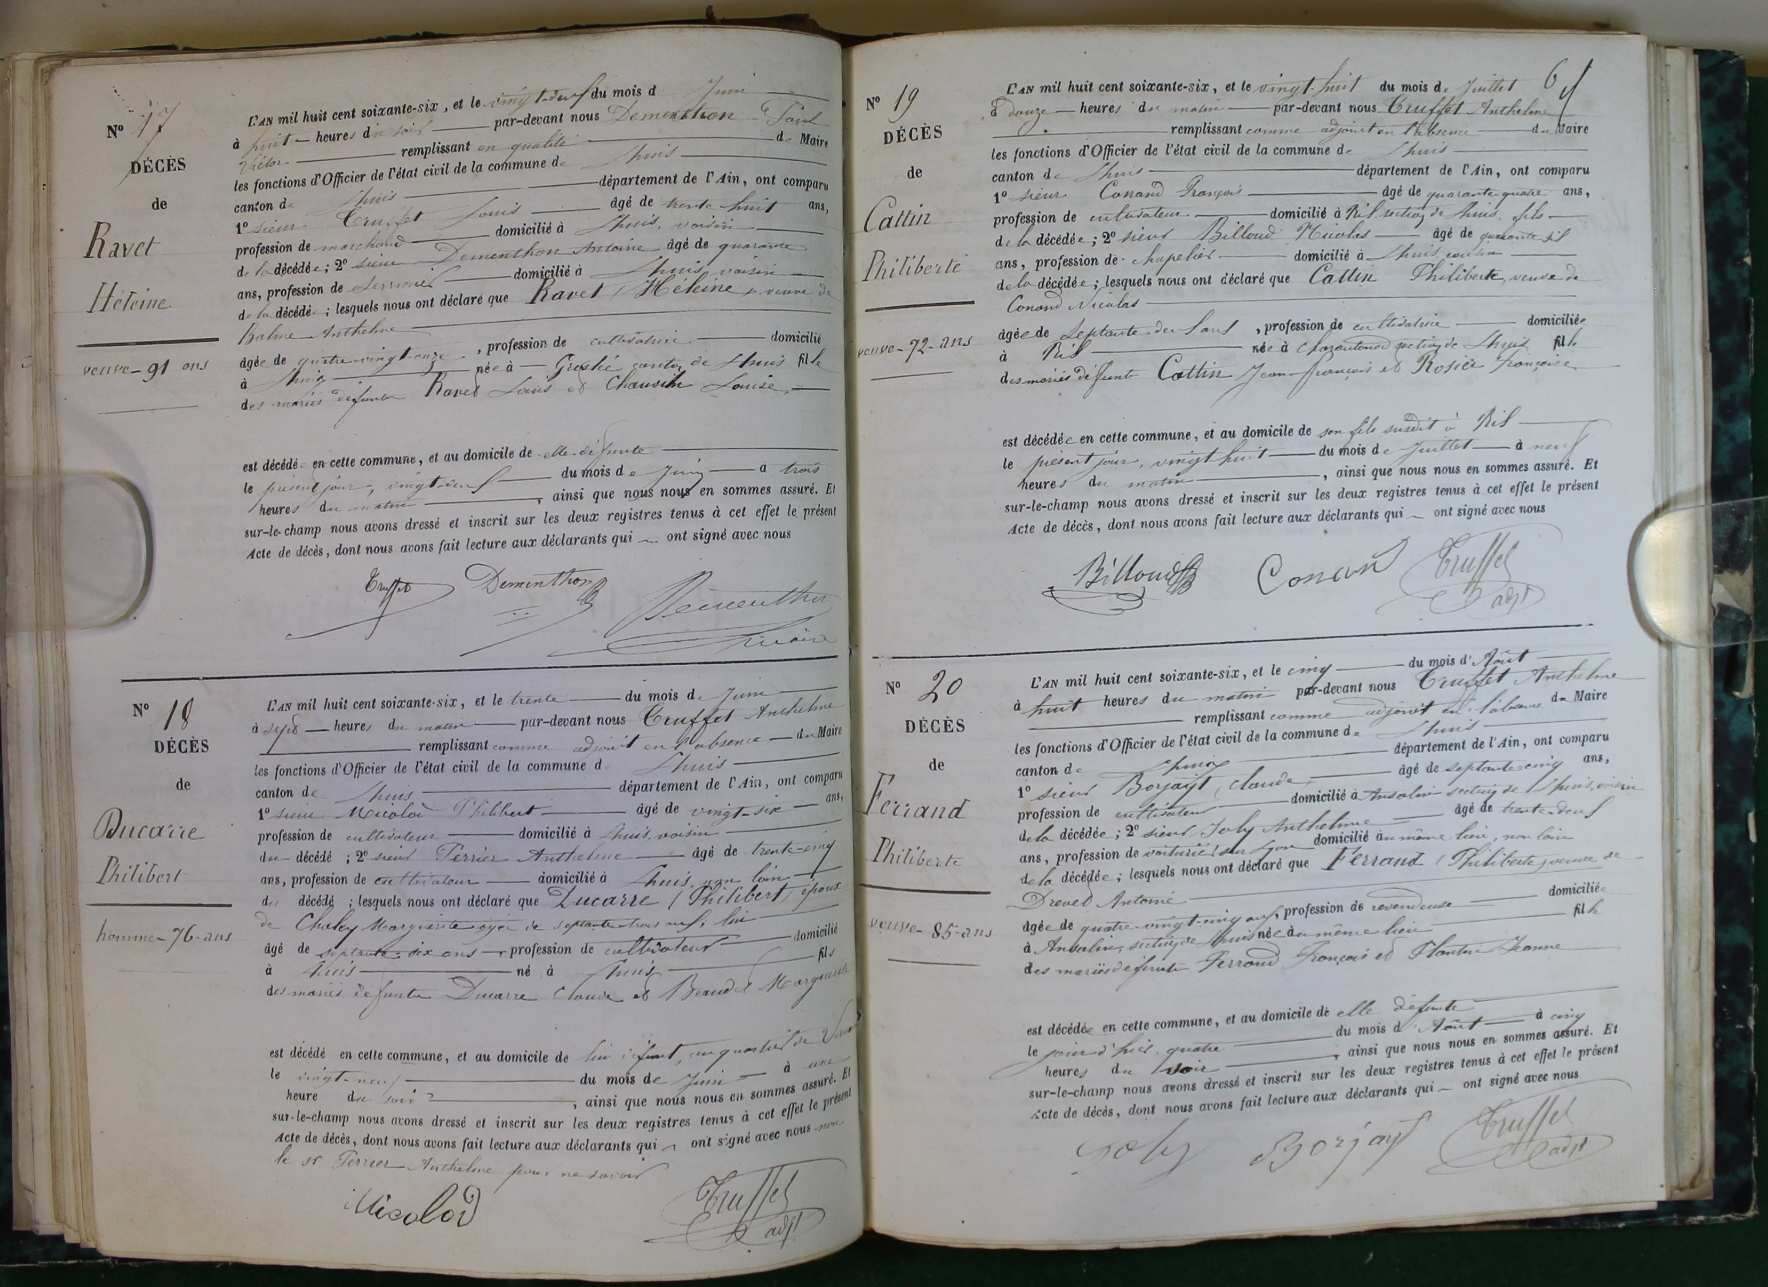 N° 17
DÉCÈS
de
Ravet
Héleine
veuve - 91 ans
L'AN mil huit cent soixante-six, et le vingt-neuf du mois d Juin
à huit heures du soir par-devant nous Dementhon Paul
Victor remplissant en qualité de Maire
les fonctions d'Officier de l'état civil de la commune de Lhuis
canton de Lhuis département de l'Ain, ont comparu
1° sieur Truffet Louis âgé de trente huit ans,
profession de marchand domicilié à Lhuis, voisin
de la décédée; 2° sieur Dementhon Antoine âgé de quarante
ans, profession de domicilié à Lhuis voisin
de la décédée; lesquels nous ont déclaré que Ravet (Héleine) veuve de
Anthelme
âgée de quatre-vingt-onze, profession de cultivatrice domicilié
à Lhuis née à Groslé canton de Lhuis fille
des mariés défunts Ravet Louis et Louise
est décédé en cette commune, et au domicile de elle défunte
le présent jour, vingt-neuf du mois de Juin à trois
heures du matin, ainsi que nous nous en sommes assuré. Et
sur-le-champ nous avons dressé et inscrit sur les deux registres tenus à cet effet le présent
Acte de décès, dont nous avons fait lecture aux déclarants qui ont signé avec nous
Truffet Dementhon Dementhon
maire
N° 18
DÉCÈS
de
Ducarre
Philibert
homme - 76 - ans
L'AN mil huit cent soixante-six, et le trente du mois de Juin
à sept heures du matin par-devant nous Truffet Anthelme
remplissant comme adjoint en l'absence du Maire
les fonctions d'Officier de l'état civil de la commune d Lhuis
canton de Lhuis département de l'Ain, ont comparu
1° sieur Micoloi Philibert âgé de vingt-six ans,
profession de cultivateur domicilié à Lhuis, voisin
du décédé; 2° sieur Perrier Anthelme âgé de trente-cinq
ans, profession de cultivateur domicilié à Lhuis, non loin
du décédé; lesquels nous ont déclaré que Ducarre (Philibert) époux
de Chaley Marguerite âgée de septante-trois ans, lui
âgé de septante-six ans, profession de cultivateur domicilié
à Lhuis né à Lhuis fils
des mariés défunts Ducarre Claude et Marguerite
est décédé en cette commune, et au domicile de lui défunt, au quartier de
le vingt-neuf du mois de Juin à une
heure du soir, ainsi que nous nous en sommes assuré. Et
sur-le-champ nous avons dressé et inscrit sur les deux registres tenus à cet effet le présent
Acte de décès, dont nous avons fait lecture aux déclarants qui ont signé avec nous non
le sr Perrier Anthelme pour ne savoir
Micoloi Truffet
adjt
6
N° 19
DÉCÈS
de
Cattin
Philiberte
veuve - 72 - ans
L'AN mil huit cent soixante-six, et le vingt huit du mois de Juillet
à douze heures du matin par-devant nous Truffet Anthelme
remplissant comme adjoint en l'absence du Maire
les fonctions d'Officier de l'état civil de la commune de Lhuis
canton de Lhuis département de l'Ain, ont comparu
1° sieur Conand François âgé de quarante quatre ans,
profession de cultivateur domicilié à Rix section de Lhuis, fils
de la décédée; 2° sieur Billoud Nicolas âgé de quarante six
ans, profession de chapelier domicilié à Lhuis
de la décédée; lesquels nous ont déclaré que Cattin Philiberte, veuve de
Conand Nicolas
âgée de septante-deux ans, profession de cultivatrice domiciliée
à Rix née à section de Lhuis fille
des mariés défunts Cattin Jean-françois et Rosier françoise
est décédée en cette commune, et au domicile de son fils susdit à Rix
le présent jour, vingt huit du mois de Juillet à neuf
heures du matin, ainsi que nous nous en sommes assuré. Et
sur-le-champ nous avons dressé et inscrit sur les deux registres tenus à cet effet le présent
Acte de décès, dont nous avons fait lecture aux déclarants qui ont signé avec nous
Billoud Conand Truffet
adjt
N° 20
DÉCÈS
de
Ferrand
Philiberte
veuve - 85 - ans
L'AN mil huit cent soixante-six, et le cinq du mois d'Août
à huit heures du matin par-devant nous Truffet Anthelme
remplissant comme adjoint en l'absence du Maire
les fonctions d'Officier de l'état civil de la commune de Lhuis
canton de Lhuis département de l'Ain, ont comparu
1° sieur Borjayt Claude âgé de septante-cinq ans,
profession de cultivateur domicilié à Ansolin section de Lhuis, voisin
de la décédée; 2° sieur Joly Anthelme âgé de trente-deux
ans, profession de voiturier sur domicilié au même lieu, non loin
de la décédée; lesquels nous ont déclaré que Ferrand (Philiberte) veuve de
Drevet Antoine
âgée de quatre-vingt-cinq ans, profession de revendeuse domiciliée
à Ansolin, section de Lhuis née au même lieu fille
des mariés défunts Ferrand François et Jeanne
est décédée en cette commune, et au domicile de elle défunte
le jour d'hier, quatre du mois d'Août à cinq
heures du soir, ainsi que nous nous en sommes assuré. Et
sur-le-champ nous avons dressé et inscrit sur les deux registres tenus à cet effet le présent
Acte de décès, dont nous avons fait lecture aux déclarants qui ont signé avec nous
Joly Borjayt Truffet
adjt